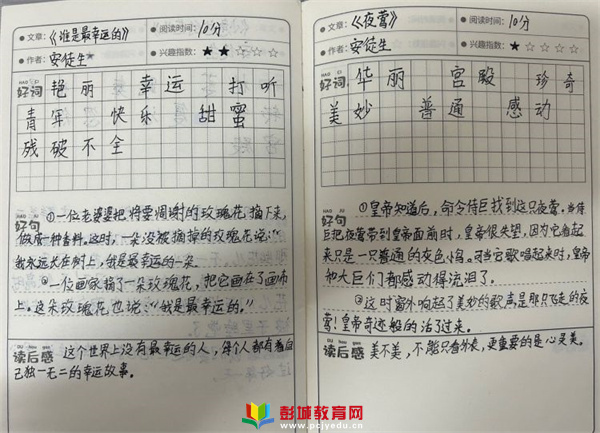 文章：《谁是最幸运的》
阅读时间：10分
作者：安徒生
兴趣指数：★★☆☆☆☆
HAO CI
好词
艳丽 幸运 打听
青年 快乐 甜蜜
残破不全
HAO JU
好句
①一位老婆婆把将要凋谢的玫瑰花摘下来，
做成一种香料。这时，一朵没被摘掉的玫瑰花说："
我永远长在树上，我是最幸运的一朵。
②一位画家摘了一朵玫瑰花，把它画在了画布
上。这朵玫瑰花也说："我是最幸运的。"
DU HOU GAN
读后感
这个世界上没有最幸运的人，每个人都有着自
己独一无二的幸运故事。
文章：《夜莺》
阅读时间：10分
作者：安徒生
兴趣指数：★☆☆☆☆
HAO CI
好词
华丽 宫殿 珍奇
美妙 普通 感动
HAO JU
好句
①皇帝知道后，命令侍臣找到这只夜莺。当侍
臣把夜莺带到皇帝面前时，皇帝很失望，因为它看起
来只是一只普通的灰色小鸟。可当它歌唱起来时，皇帝
和大臣们都感动得流泪了。
②这时窗外响起了美妙的歌声，是那只飞走的夜
莺！皇帝奇迹般的活了过来。
DU HOU GAN
读后感
美不美，不能只看外表，更重要的是心灵美。
彭城教育网
www.pcjyedu.cn